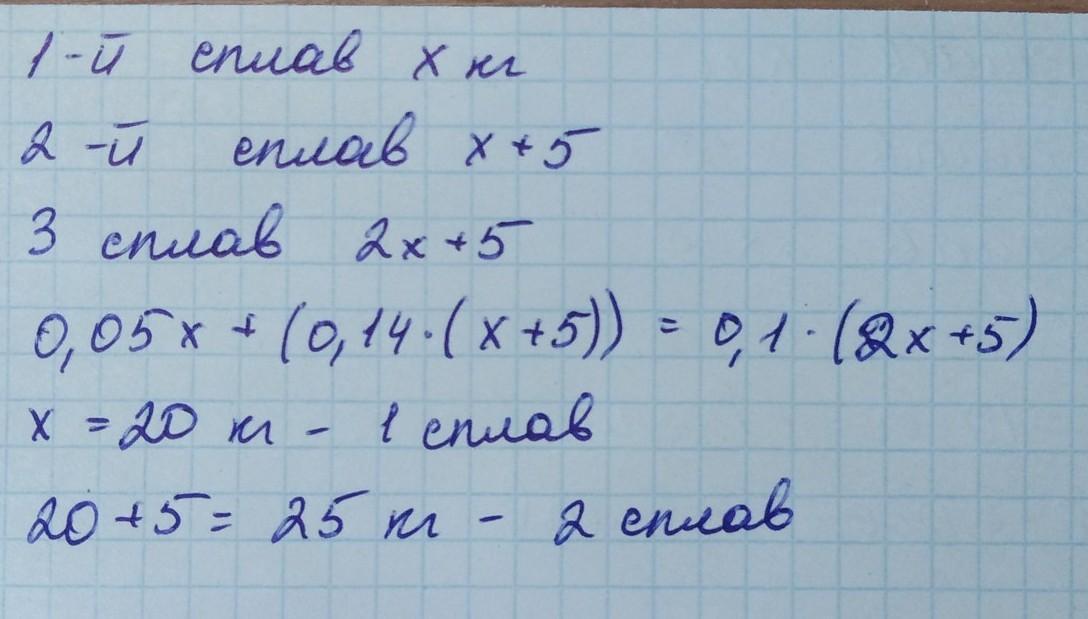 1-й сплав x кг
2-й сплав x+5
3 сплав 2x+5
0,05x + (0,14·(x+5)) = 0,1·(2x+5)
x = 20 кг - 1 сплав
20+5= 25 кг - 2 сплав